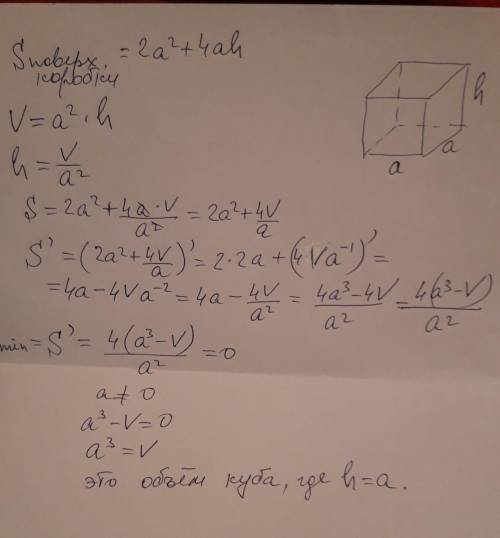 S поверх. коробки = 2a² + 4ah
V = a² · h
h = V/a²
S = 2a² + 4a·V/a² = 2a² + 4V/a
S' = (2a² + 4V/a)' = 2·2a + (4Va⁻¹)' =
= 4a − 4Va⁻² = 4a − 4V/a² = (4a³ − 4V)/a² = 4(a³ − V)/a²
min = S' = 4(a³ − V)/a² = 0
a ≠ 0
a³ − V = 0
a³ = V
это объём куба, где h = a.
h
a
a